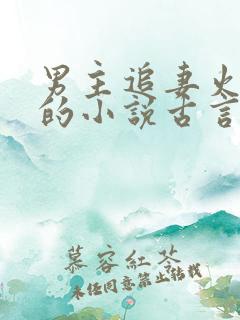 男主追妻火
的小說古言
慕容紅苓
未经同意禁止转载